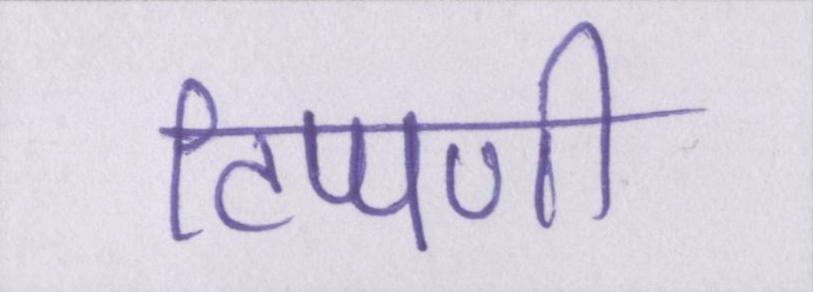 टिप्पणी